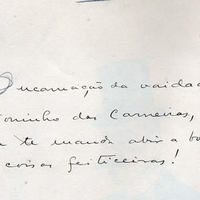 Encarnação da vaidad
oninho das Carneiras,
te manda abrir a bo
coisas feiticeiras!